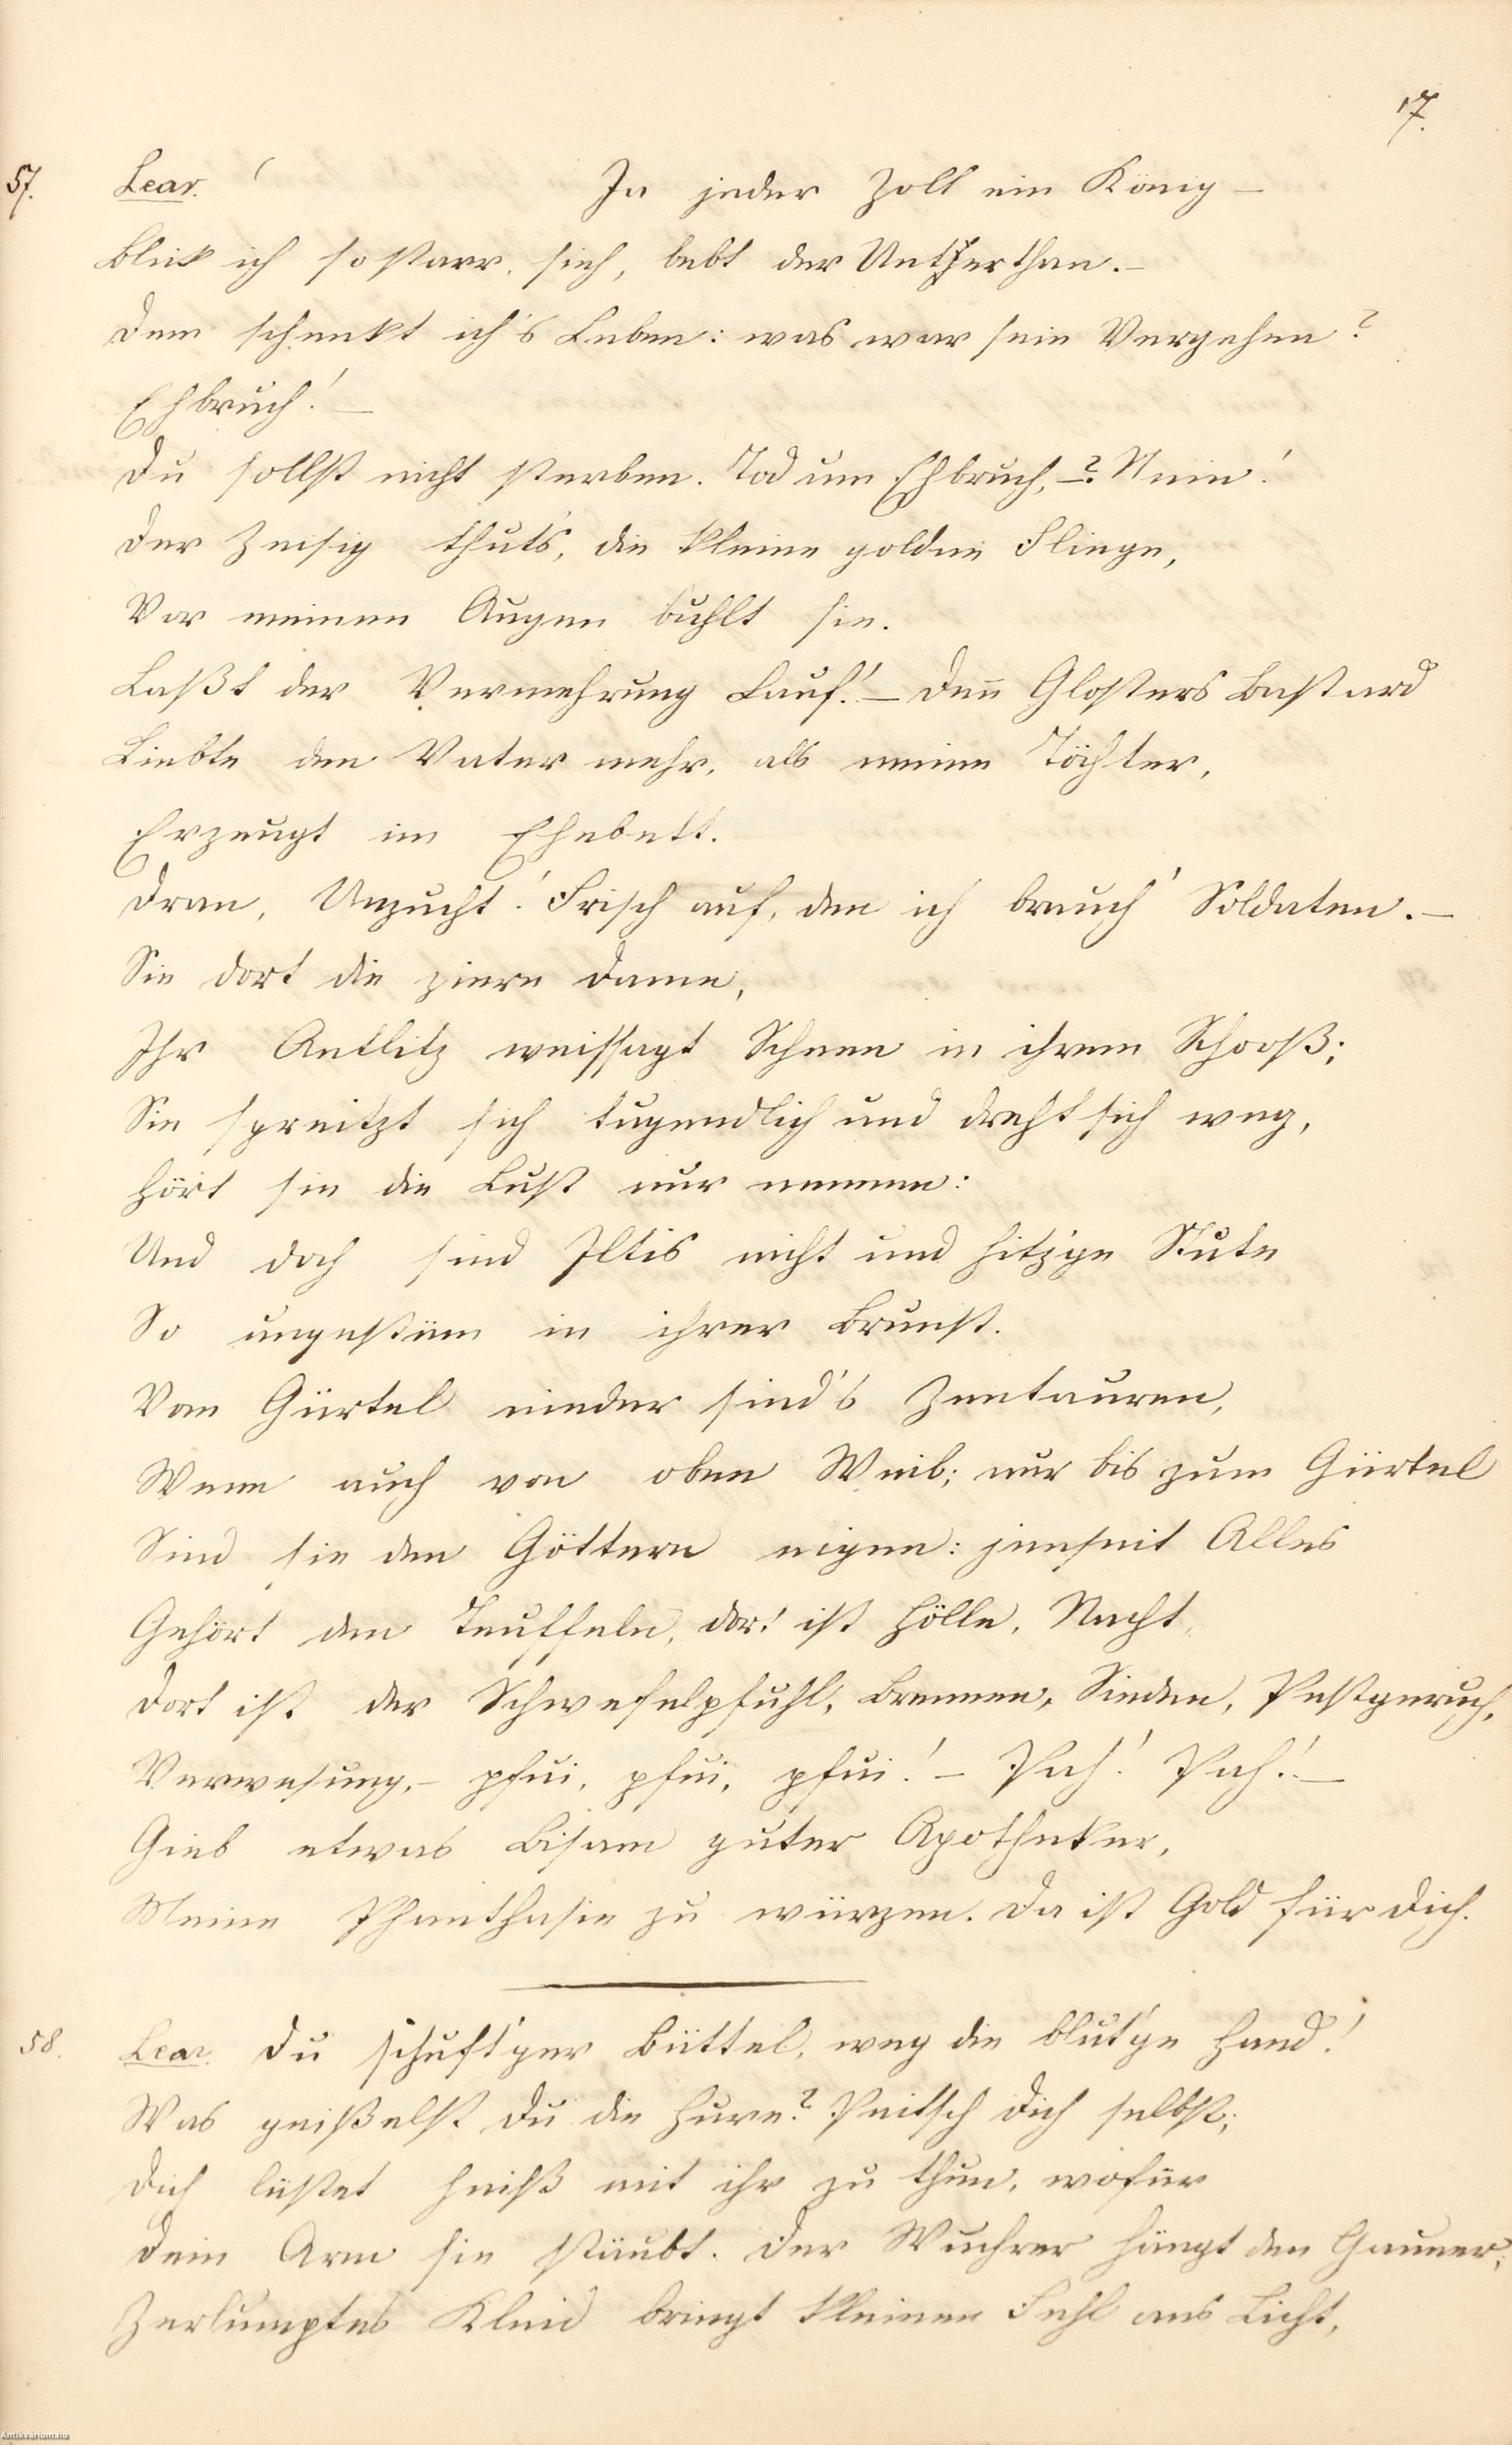 17.
57. Lear. Ja jeder Zoll ein König –
Blick ich so starr, sieh, bebt der Unterthan. –
Dem schenkt ich's Leben: was war sein Vergehen?
Ehbruch! –
Du sollst nicht sterben. Tod um Ehbruch, –? Nein!
Der Zeisig thut's, die kleine goldne Fliege,
Vor meinen Augen buhlt sie.
Laßt der Vermehrung Lauf! – Denn Glosters Bastard
Liebte den Vater mehr, als meine Töchter,
Erzeugt im Ehebett.
Dran, Unzucht! Frisch auf, den ich brauch' Soldaten. –
Sie dort die ziere Dame,
Ihr Antlitz weissagt Schnee in ihrem Schooß;
Sie spreitzt sich tugendlich und dreht sich weg,
Hört sie die Lust nur nennen:
Und doch sind Iltis nicht und hitz'ge Stute
So ungestüm in ihrer Brunst.
Vom Gürtel nieder sind's Zentauren,
Wenn auch von oben Weib; nur bis zum Gürtel
Sind sie den Göttern eigen: jenseit Alles
Gehört den Teuffeln, dort ist Hölle, Nacht,
Dort ist der Schwefelpfuhl, Brennen, Sieden, Pestgeruch,
Verwesung, – pfui, pfui, pfui! – Pah! Pah! –
Gieb etwas Bisam guter Apotheker,
Meine Phanthasie zu würzen. Da ist Gold für dich.
58. Lear. Du schuft'ger Büttel, weg die blut'ge Hand!
Was geißelst du die Hure? Peitsch dich selbst;
Dich lüstet heiß mit ihr zu thun, wofür
Dein Arm sie stäubt. Der Wuchrer hängt den Gauner;
Zerlumptes Kleid bringt kleinen Fehl ans Licht,
Antikvarium.hu